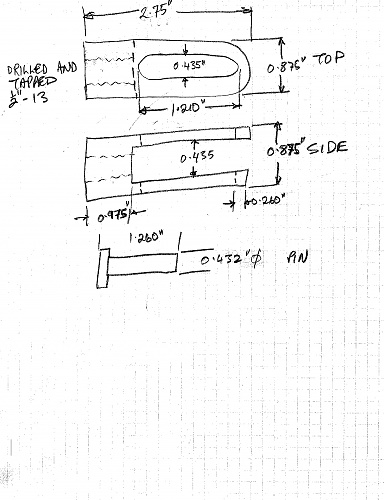 2.75"
DRILLED AND
TAPPED
½"-13
0.435"
0.875" TOP
1.210"
0.435
0.875" SIDE
0.975"
0.260"
1.260"
0.432"ϕ PIN